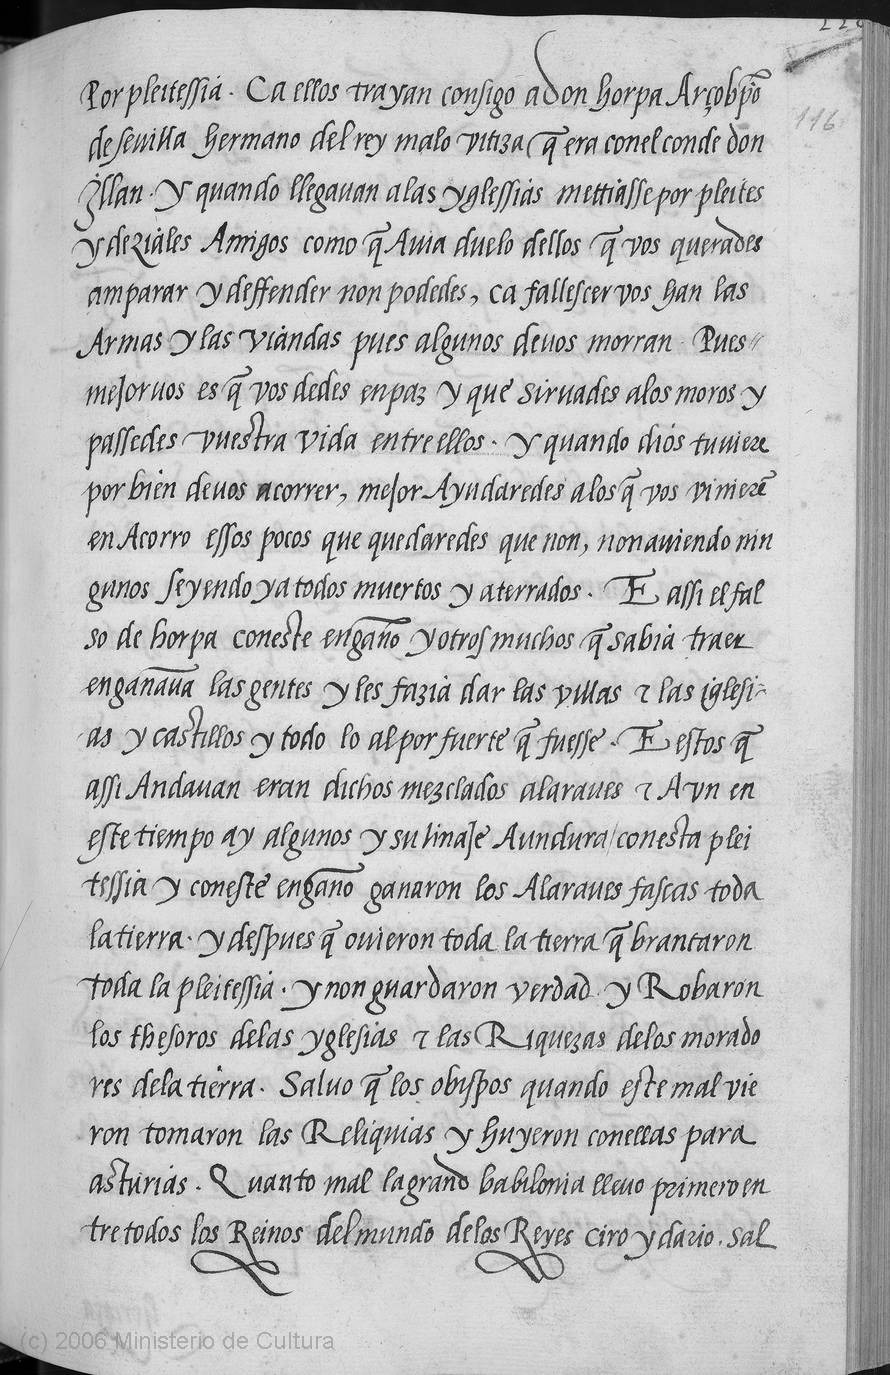 116
Por pleitessia. Ca ellos trayan consigo a don horpa Arçobpō
de sevilla hermano del rey malo vitiza q̃ era con el conde don
Yllan. Y quando llegavan a las yglessias mettiasse por pleites
y deziales Amigos como q̃ Avia duelo dellos q̃ vos querades
amparar y deffender non podedes, ca fallescer vos han las
Armas y las viandas pues algunos de vos morran. Pues
mejor vos es q̃ vos dedes en paz y que siruades a los moros y
passedes vuestra vida entre ellos. y quando dios tuviere
por bien de vos acorrer, mejor Ayudaredes a los q̃ vos vinierē
en Acorro essos pocos que quedaredes que non, non aviendo nin
gunos seyendo ya todos muertos y aterrados. E assi el fal
so de horpa con este engaño y otros muchos q̃ sabia traer
enganāva las gentes y les fazia dar las villas τ las iglesi-
as y castillos y todo lo al por fuerte q̃ fuesse. E estos q̃
assi Andavan eran dichos mezclados alaraves τ Avn en
este tiempo ay algunos y su linaje Aun dura / con esta plei
tessia y con este engaño ganaron los Alaraves fascas toda
la tierra. y despues q̃ ovieron toda la tierra q̃brantaron
toda la pleitessia. y non guardaron verdad y Robaron
los thesoros de las yglesias τ las Riquezas de los morado
res de la tierra. Salvo q̃ los obispos quando este mal vie
ron tomaron las Reliquias y huyeron con ellas para
asturias. Quanto mal la grand babilonia llevo primero en
tre todos los Reinos del mundo de los Reyes ciro y dario. sal
(c) 2006 Ministerio de Cultura